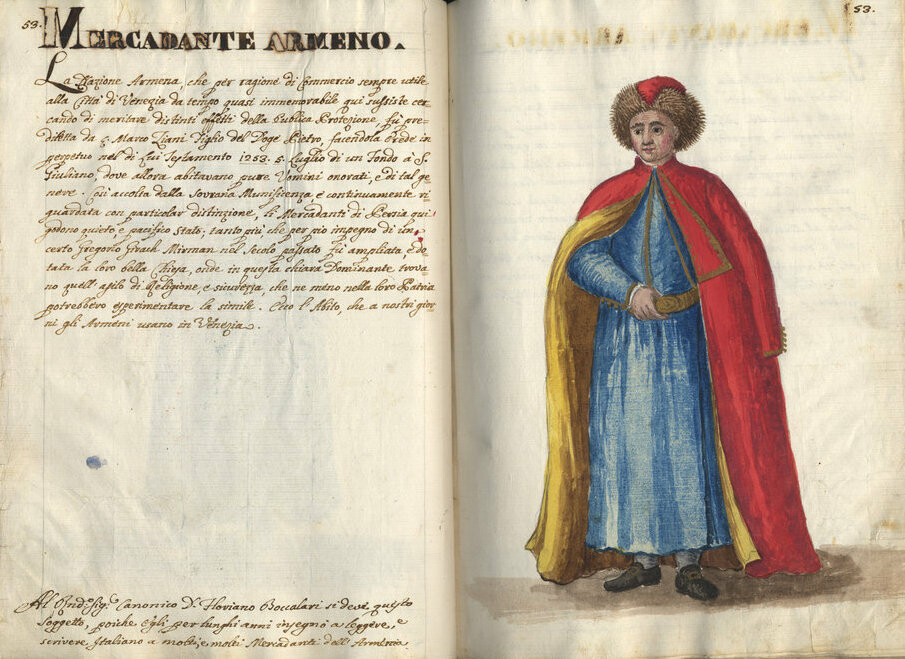 53.
MERCADANTE ARMENO.
La Nazione Armena, che per ragione di Commercio sempre utile
alla Città di Venezia da tempo quasi immemorabile qui sussiste cer
cando di meritare distinti effetti della Publica Protezione, fù pre-
diletta da Marco Ziani Figlio del Doge Pietro, facendola Erede in
perpetuo nel di Lui Testamento 1253. 5. Luglio di un Fondo à S.
Giuliano, dove allora abitavano pure Uomini onorati, e di tal ge
nere. Così accolta dalla Sovrana Munificenza e continuamente ri
guardata con particolar distinzione, li Mercadanti di Persia qui
godono quieto, e pacifico Stato; tanto più, che per pio impegno di un
certo Gregorio Mirman nel Secolo passato fù ampliata, e do
tata la loro bella Chiesa, onde in questa chiara Dominante trova
no quell'asilo di Religione, e sicurezza, che ne meno nella loro Patria
potrebbero esperimentare la simile. Ecco l'Abito, che a nostri gior
ni gli Armeni usano in Venezia.
Al Sig.r Canonico D.n Floviano Boccalari si deve questo
Soggetto, poiche egli per lunghi anni insegnò a leggere, e
scrivere Italiano a molti, e molti Mercadanti dell'Armenia.
53.